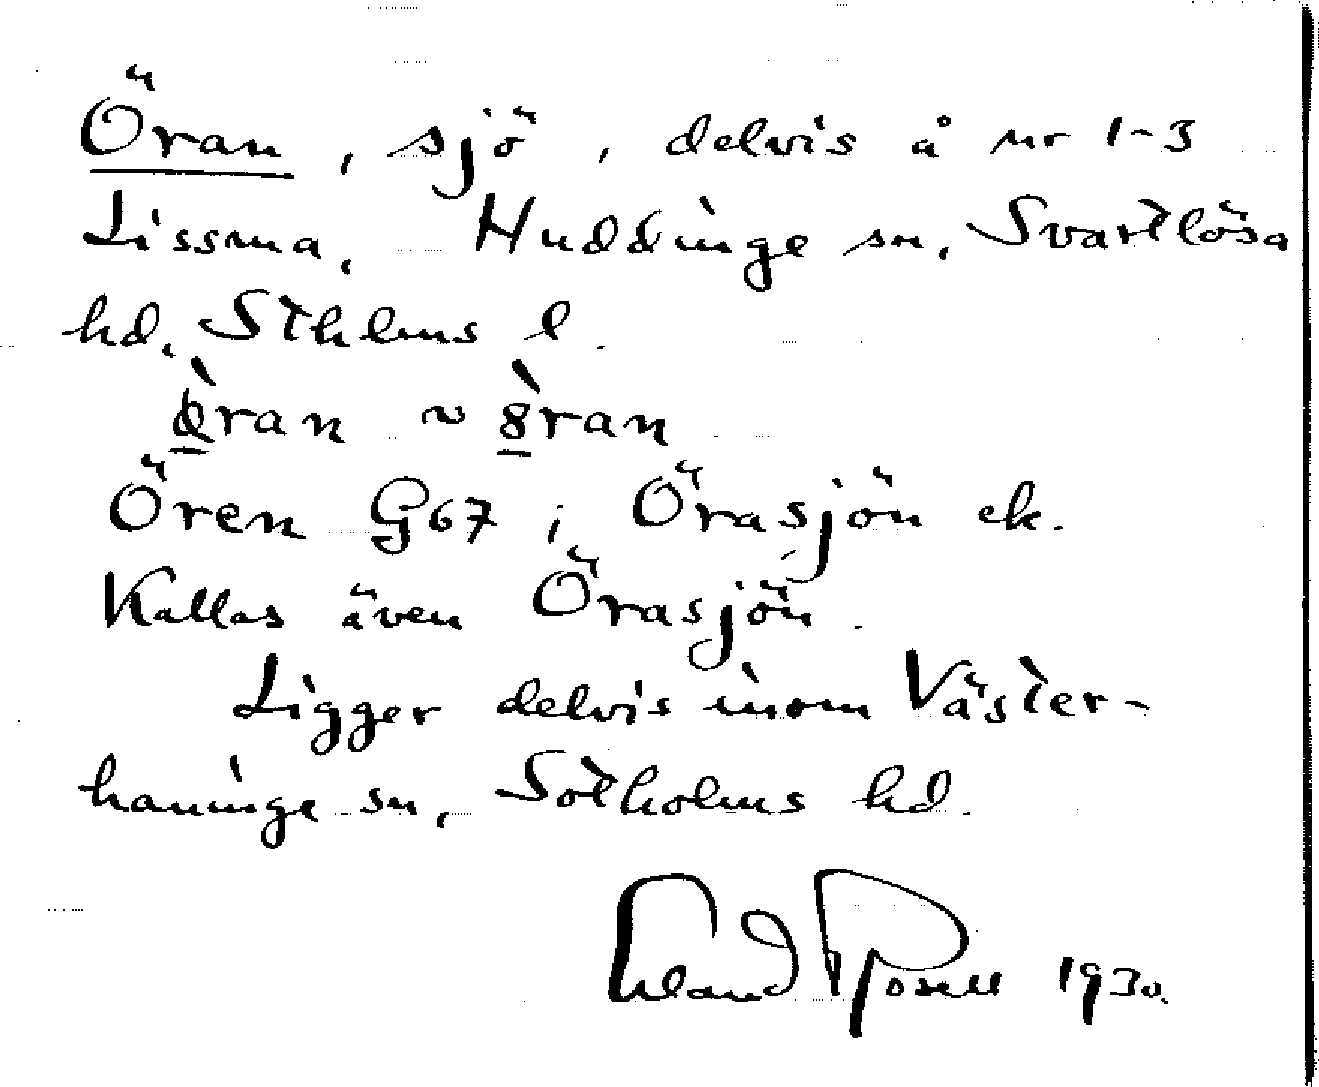 Öran, sjö, delvis å nr 1-3
Lissma, Huddinge sn, Svartlösa
hd. Sthlms l.
ø̀ran ~ 8̀ran
Ören G67 i Örasjön ek.
Kallas även Örasjön.
Ligger delvis inom Väster-
haninge sn, Sotholms hd.
Erland Rosell 1930.